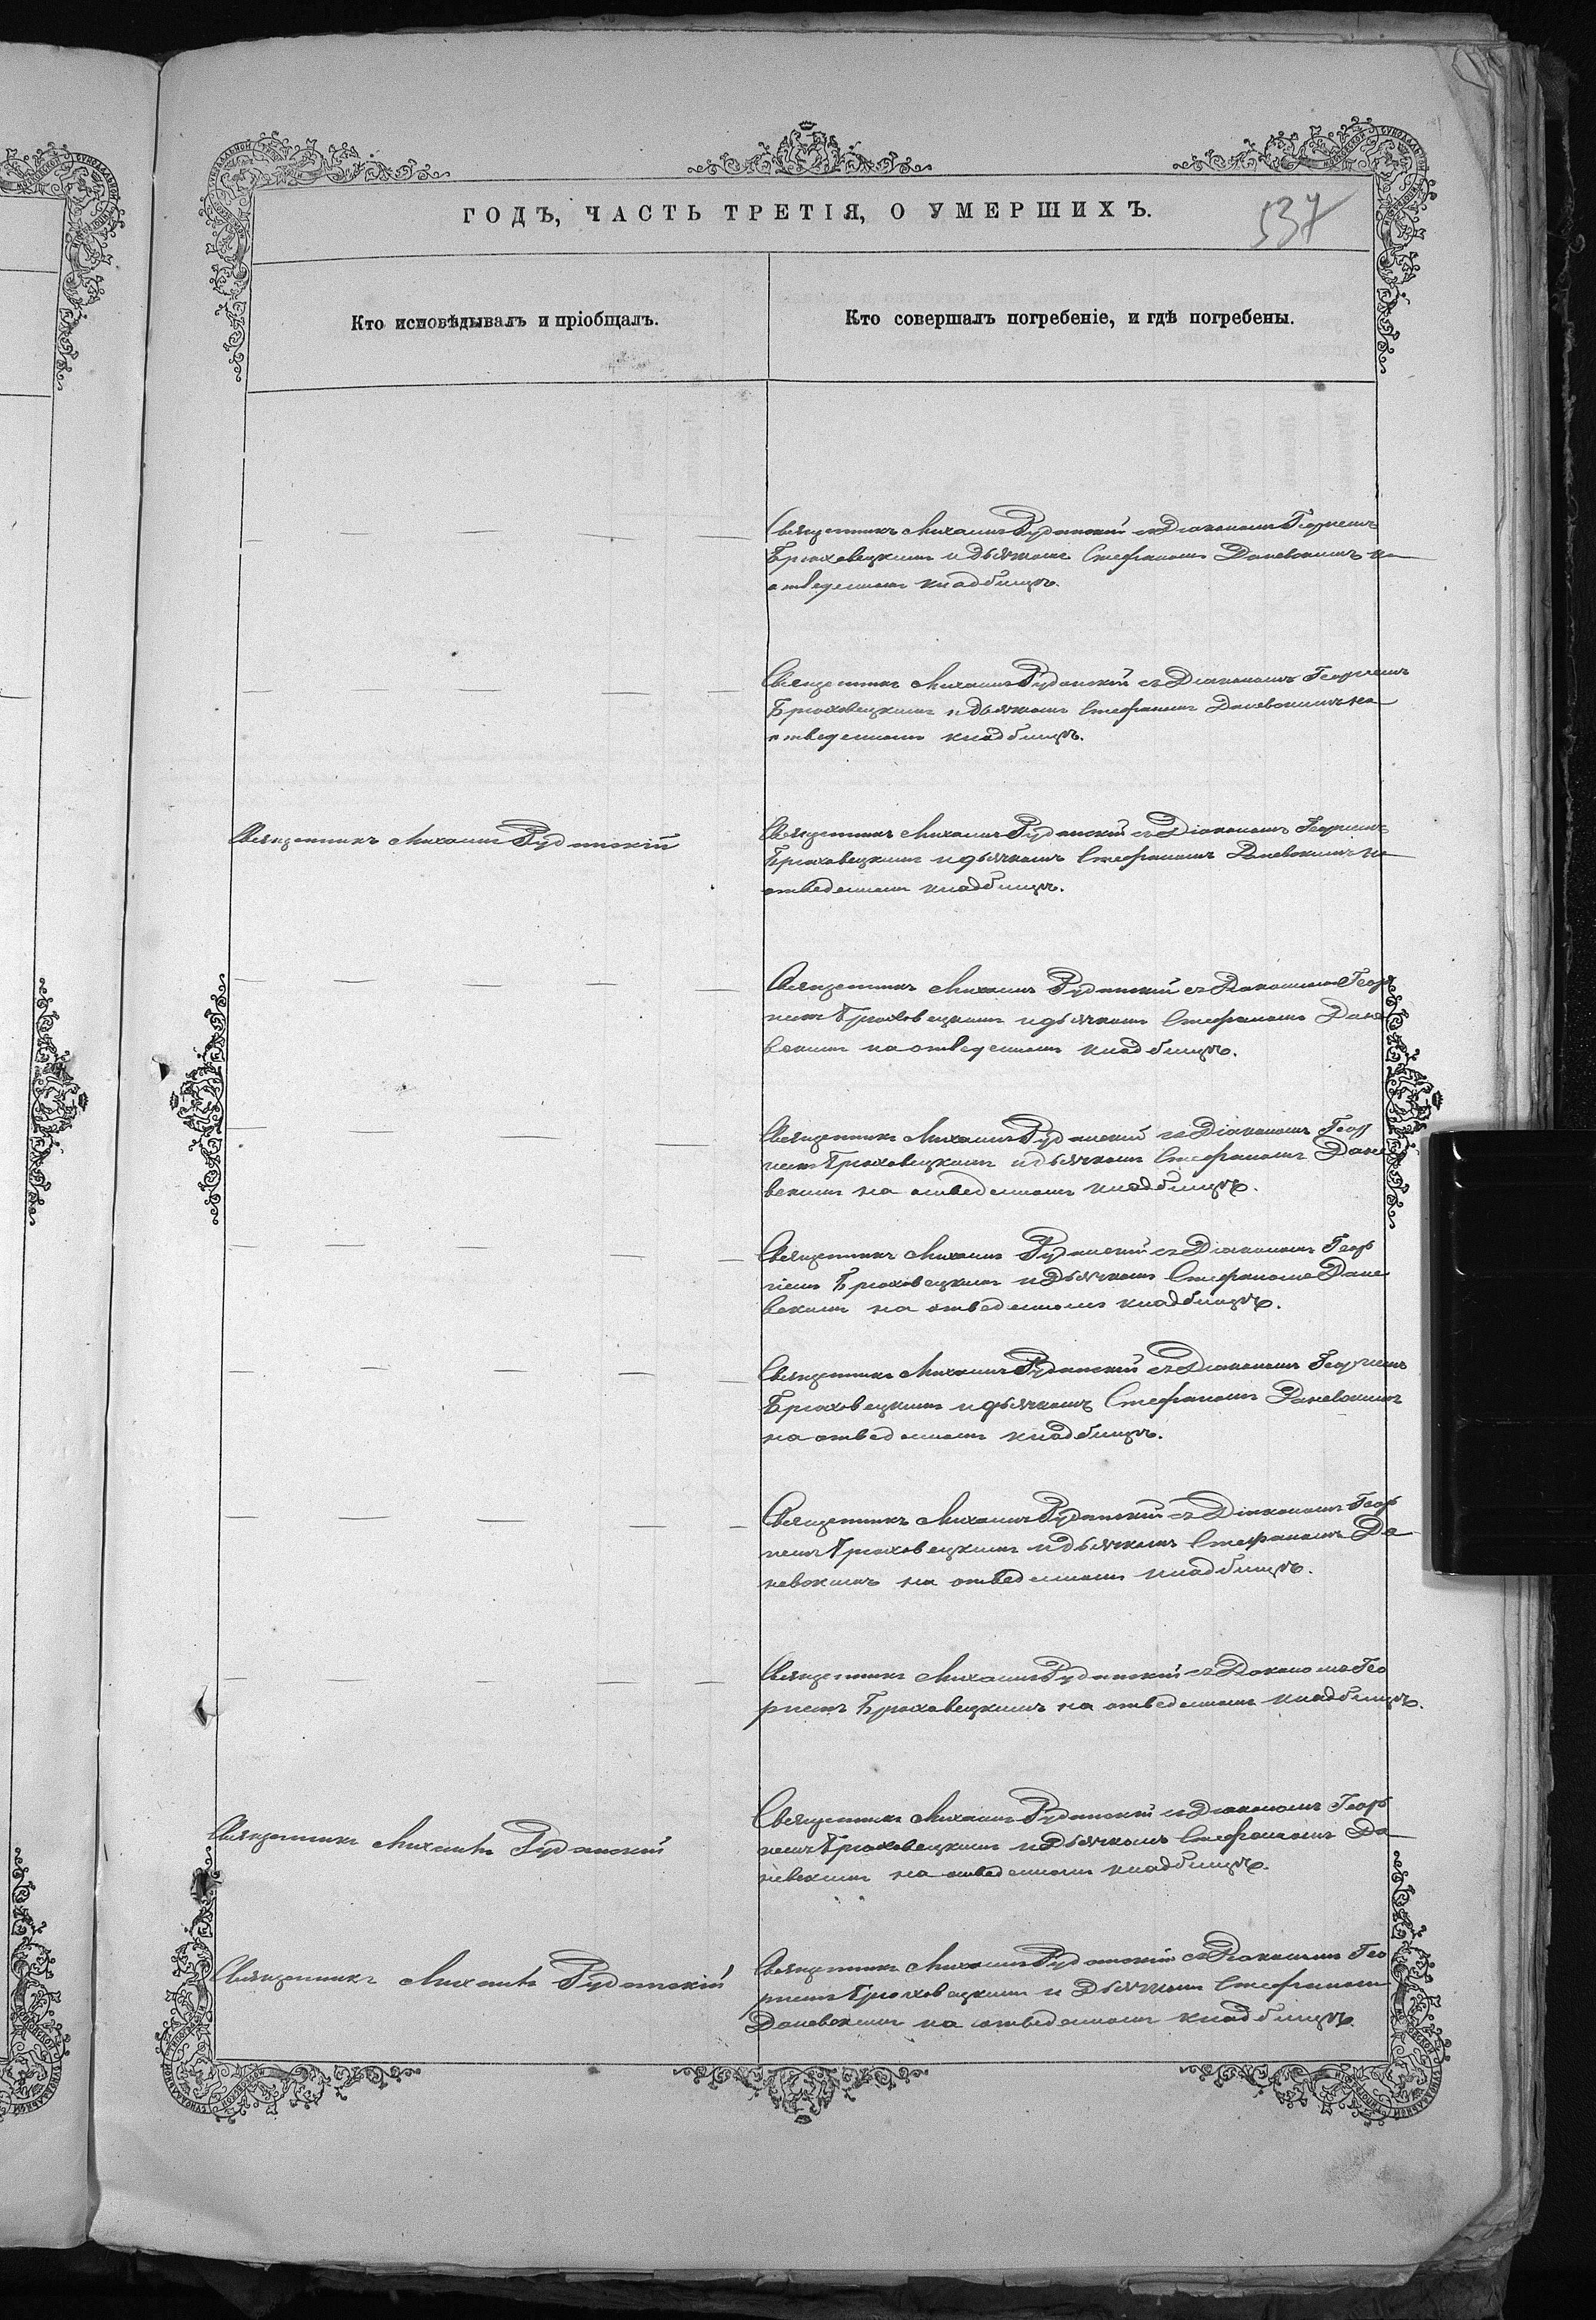 ГОДЪ, ЧАСТЬ ТРЕТІЯ, О УМЕРШИХЪ.
537
Кто исповѣдывалъ и пріобщалъ.
Кто совершалъ погребеніе, и гдѣ погребены.
Священникъ Михаилъ Руданскій съ Діакономъ Георгіемъ
Брюховецкимъ и дьячкомъ Стефаномъ Даневскимъ на
отведенномъ кладбищѣ.
Священникъ Михаилъ Руданскій съ Діакономъ Георгіемъ
Брюховецкимъ и дьячкомъ Стефаномъ Даневскимъ на
отведенномъ кладбищѣ.
Священникъ Михаилъ Руданскій
Священникъ Михаилъ Руданскій съ Діакономъ Георгіемъ
Брюховецкимъ и дьячкомъ Стефаномъ Даневскимъ на
отведенномъ кладбищѣ.
Священникъ Михаилъ Руданскій съ Діакономъ Геор
гіемъ Брюховецкимъ и дьячкомъ Стефаномъ Дане
вскимъ на отведенномъ кладбищѣ.
Священникъ Михаилъ Руданскій съ Діакономъ Геор
гіемъ Брюховецкимъ и дьячкомъ Стефаномъ Дане
вскимъ на отведенномъ кладбищѣ.
Священникъ Михаилъ Руданскій съ Діакономъ Геор
гіемъ Брюховецкимъ и Дьячкомъ Стефаномъ Дане
вскимъ на отведенномъ кладбищѣ.
Священникъ Михаилъ Руданскій съ Діакономъ Георгіемъ
Брюховецкимъ и дьячкомъ Стефаномъ Даневскимъ
на отведенномъ кладбищѣ.
Священникъ Михаилъ Руданскій съ Діакономъ Геор
гіемъ Брюховецкимъ и дьячкомъ Стефаномъ Да
невскимъ на отведенномъ кладбищѣ.
Священникъ Михаилъ Руданскій съ Діакономъ Гео
ргіемъ Брюховецкимъ на отведенномъ кладбищѣ.
Священникъ Михаилъ Руданскій
Священникъ Михаилъ Руданскій съ Діакономъ Геор
гіемъ Брюховецкимъ и Дьячкомъ Стефаномъ Да
невскимъ на отведенномъ кладбищѣ.
Священникъ Михаилъ Руданскій
Священникъ Михаилъ Руданскій съ Діакономъ Гео
ргіемъ Брюховецкимъ и Дьячкомъ Стефаномъ
Даневскимъ на отведенномъ кладбищѣ.